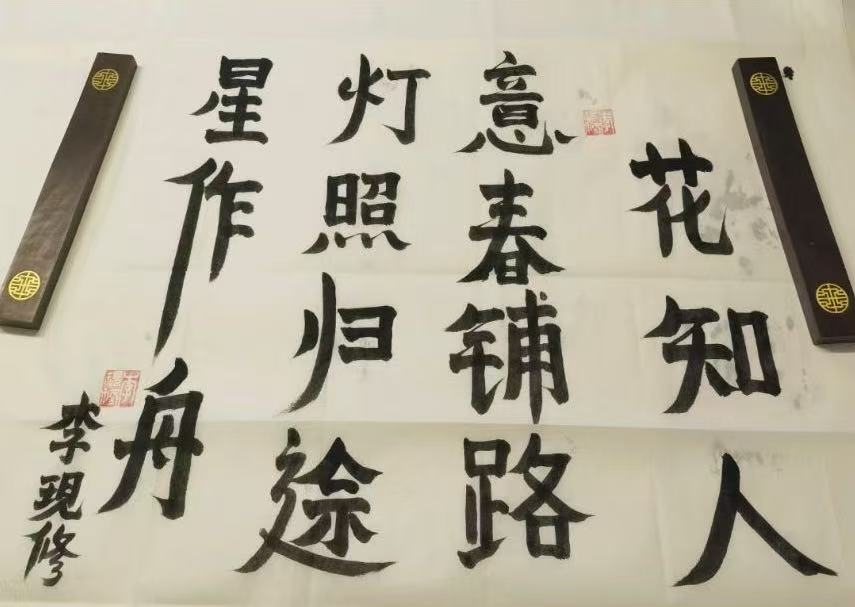 花知人
意春铺路
灯照归途
星作舟
李現修